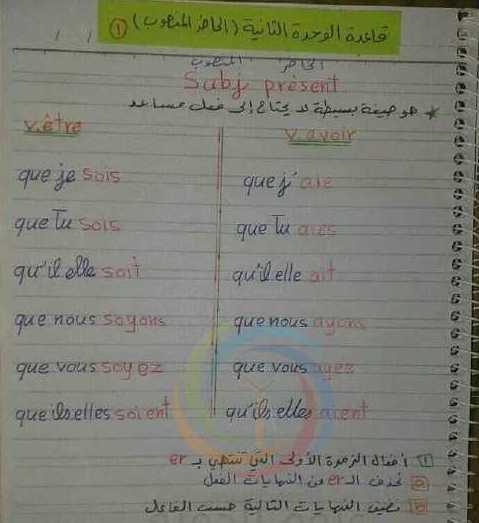 قاعدة الوحدة الثانية (الحاضر المنصوب) ①
الحاضر المنصوب
Subj présent
* هو صيغة بسيطة لا يحتاج إلى فعل مساعد
v.être v.avoir
que je sois que j'aie
que Tu sois que Tu aies
qu'il elle soit qu'il elle ait
que nous soyons que nous ayons
que vous soyez que vous ayez
que ils elles soient qu'ils elles aient
1 أفعال الزمرة الأولى التي تنتهي بـ er
نحذف الـ er من النهايات الفعل
نضيف النهايات التالية حسب الفاعل